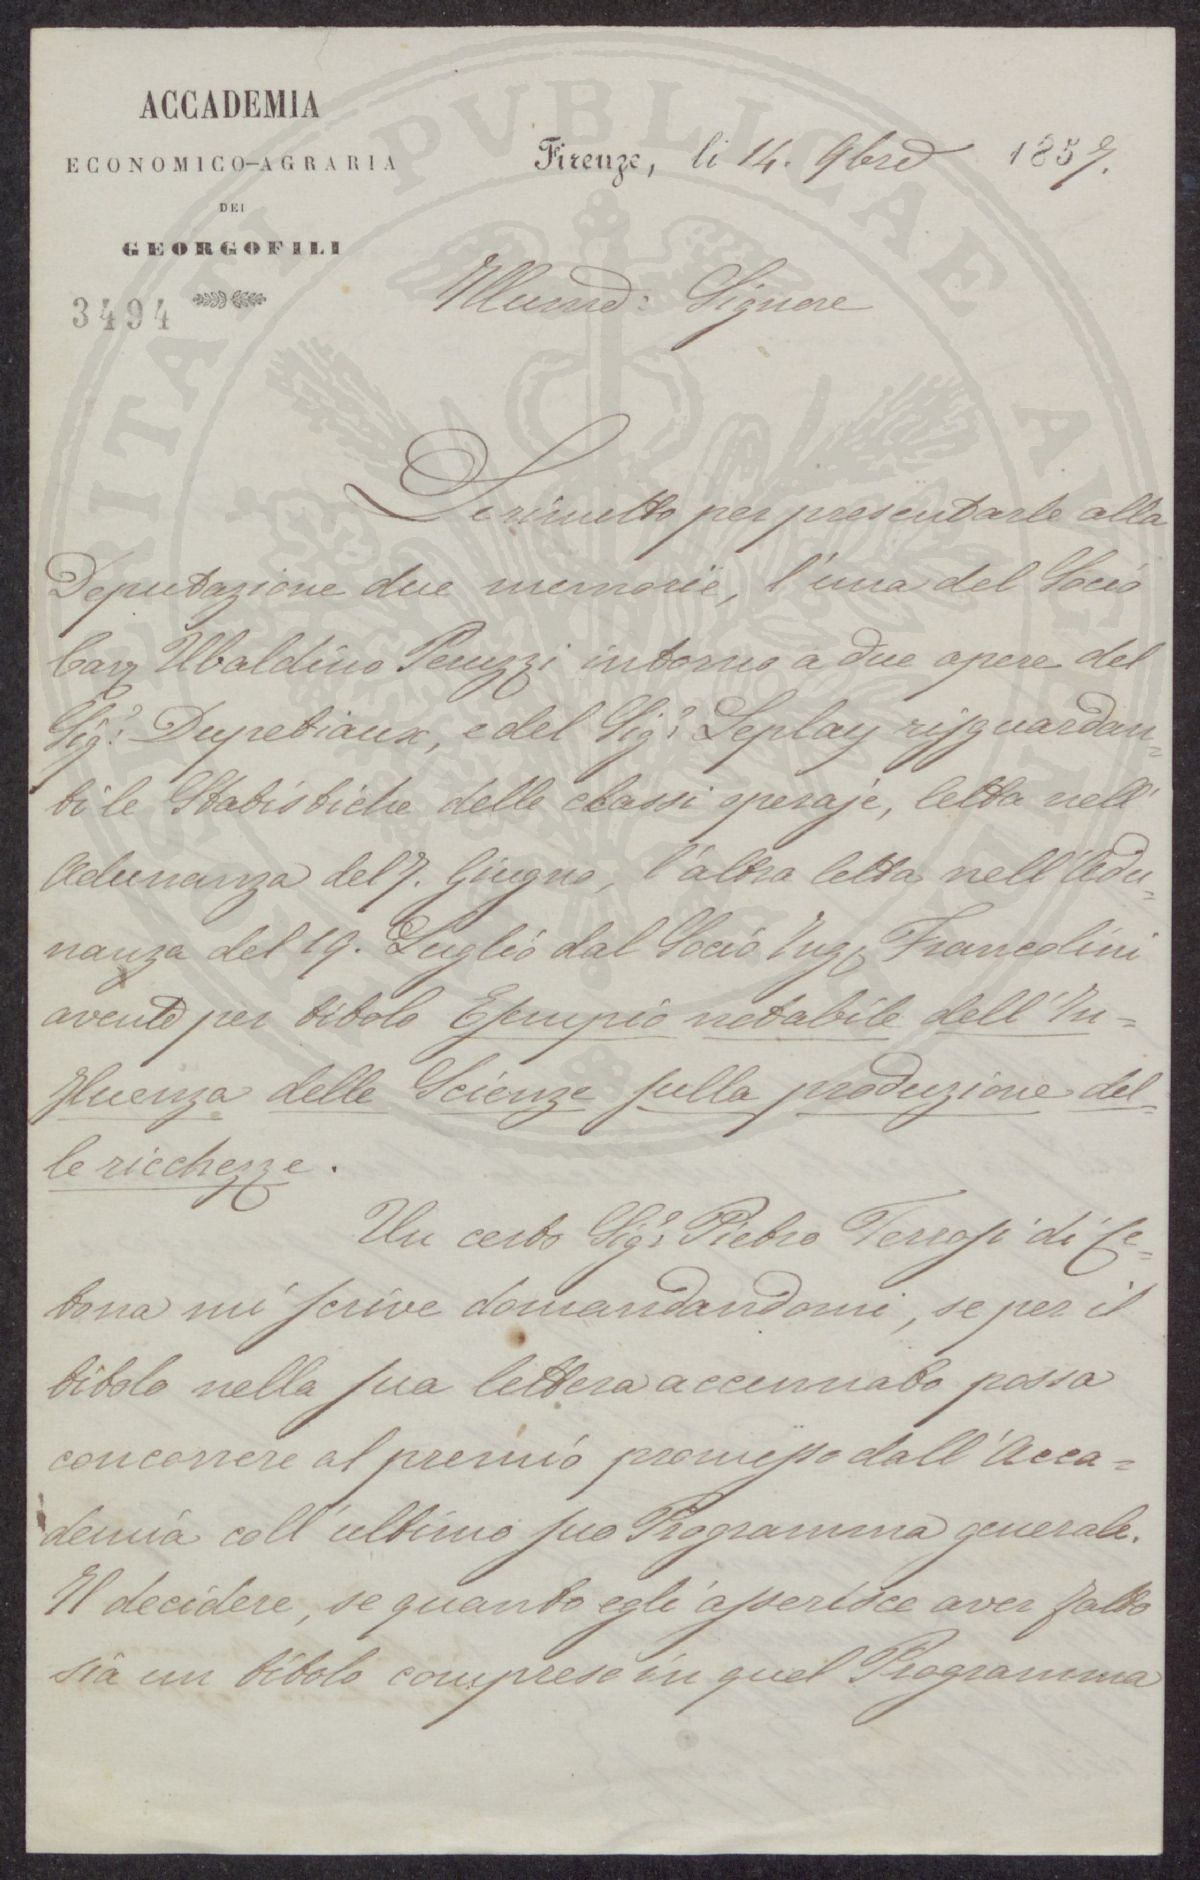 ACCADEMIA
ECONOMICO-AGRARIA
DEI
GEORGOFILI
3494
Firenze, li 14. 9bre 1857.
Illumo: Signore
Le rimetto per presentarle alla
Deputazione due memorie, l'una del Socio
Cav Ubaldino Peruzzi intorno a due opere del
Sigr: Dupetiaux, e del Sigr: Leplay risguardan=
ti le Statistiche delle classi operaje, letta nell'
Adunanza del 7. Giugno, l'altra letta nell'Adu=
nanza del 19. Luglio dal Socio Ing Francolini
avente per titolo Esempio notabile dell'In=
fluenza delle Scienze sulla produzione del=
le ricchezze.
Un certo Sigr: Pietro Terrosi di Ce=
tona mi scrive domandandomi, se per il
titolo nella sua lettera accennato possa
concorrere al premio promesso dall'Acca=
demia coll'ultimo suo Programma generale.
Il decidere, se quanto egli asserisce aver fatto
sia un titolo compreso in quel Programma